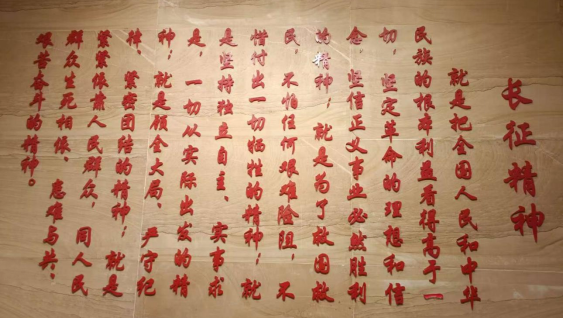 长征精神
就是把全国人民和中华
民族的根本利益看得高于一
切，坚定革命的理想和信
念，坚信正义事业必然胜利
的精神；就是为了救国救
民，不怕任何艰难险阻，不
惜付出一切牺牲的精神；就
是坚持独立自主、实事求
是，一切从实际出发的精
神；就是顾全大局、严守纪
律、紧密团结的精神；就是
紧紧依靠人民群众，同人民
群众生死相依、患难与共、
艰苦奋斗的精神。